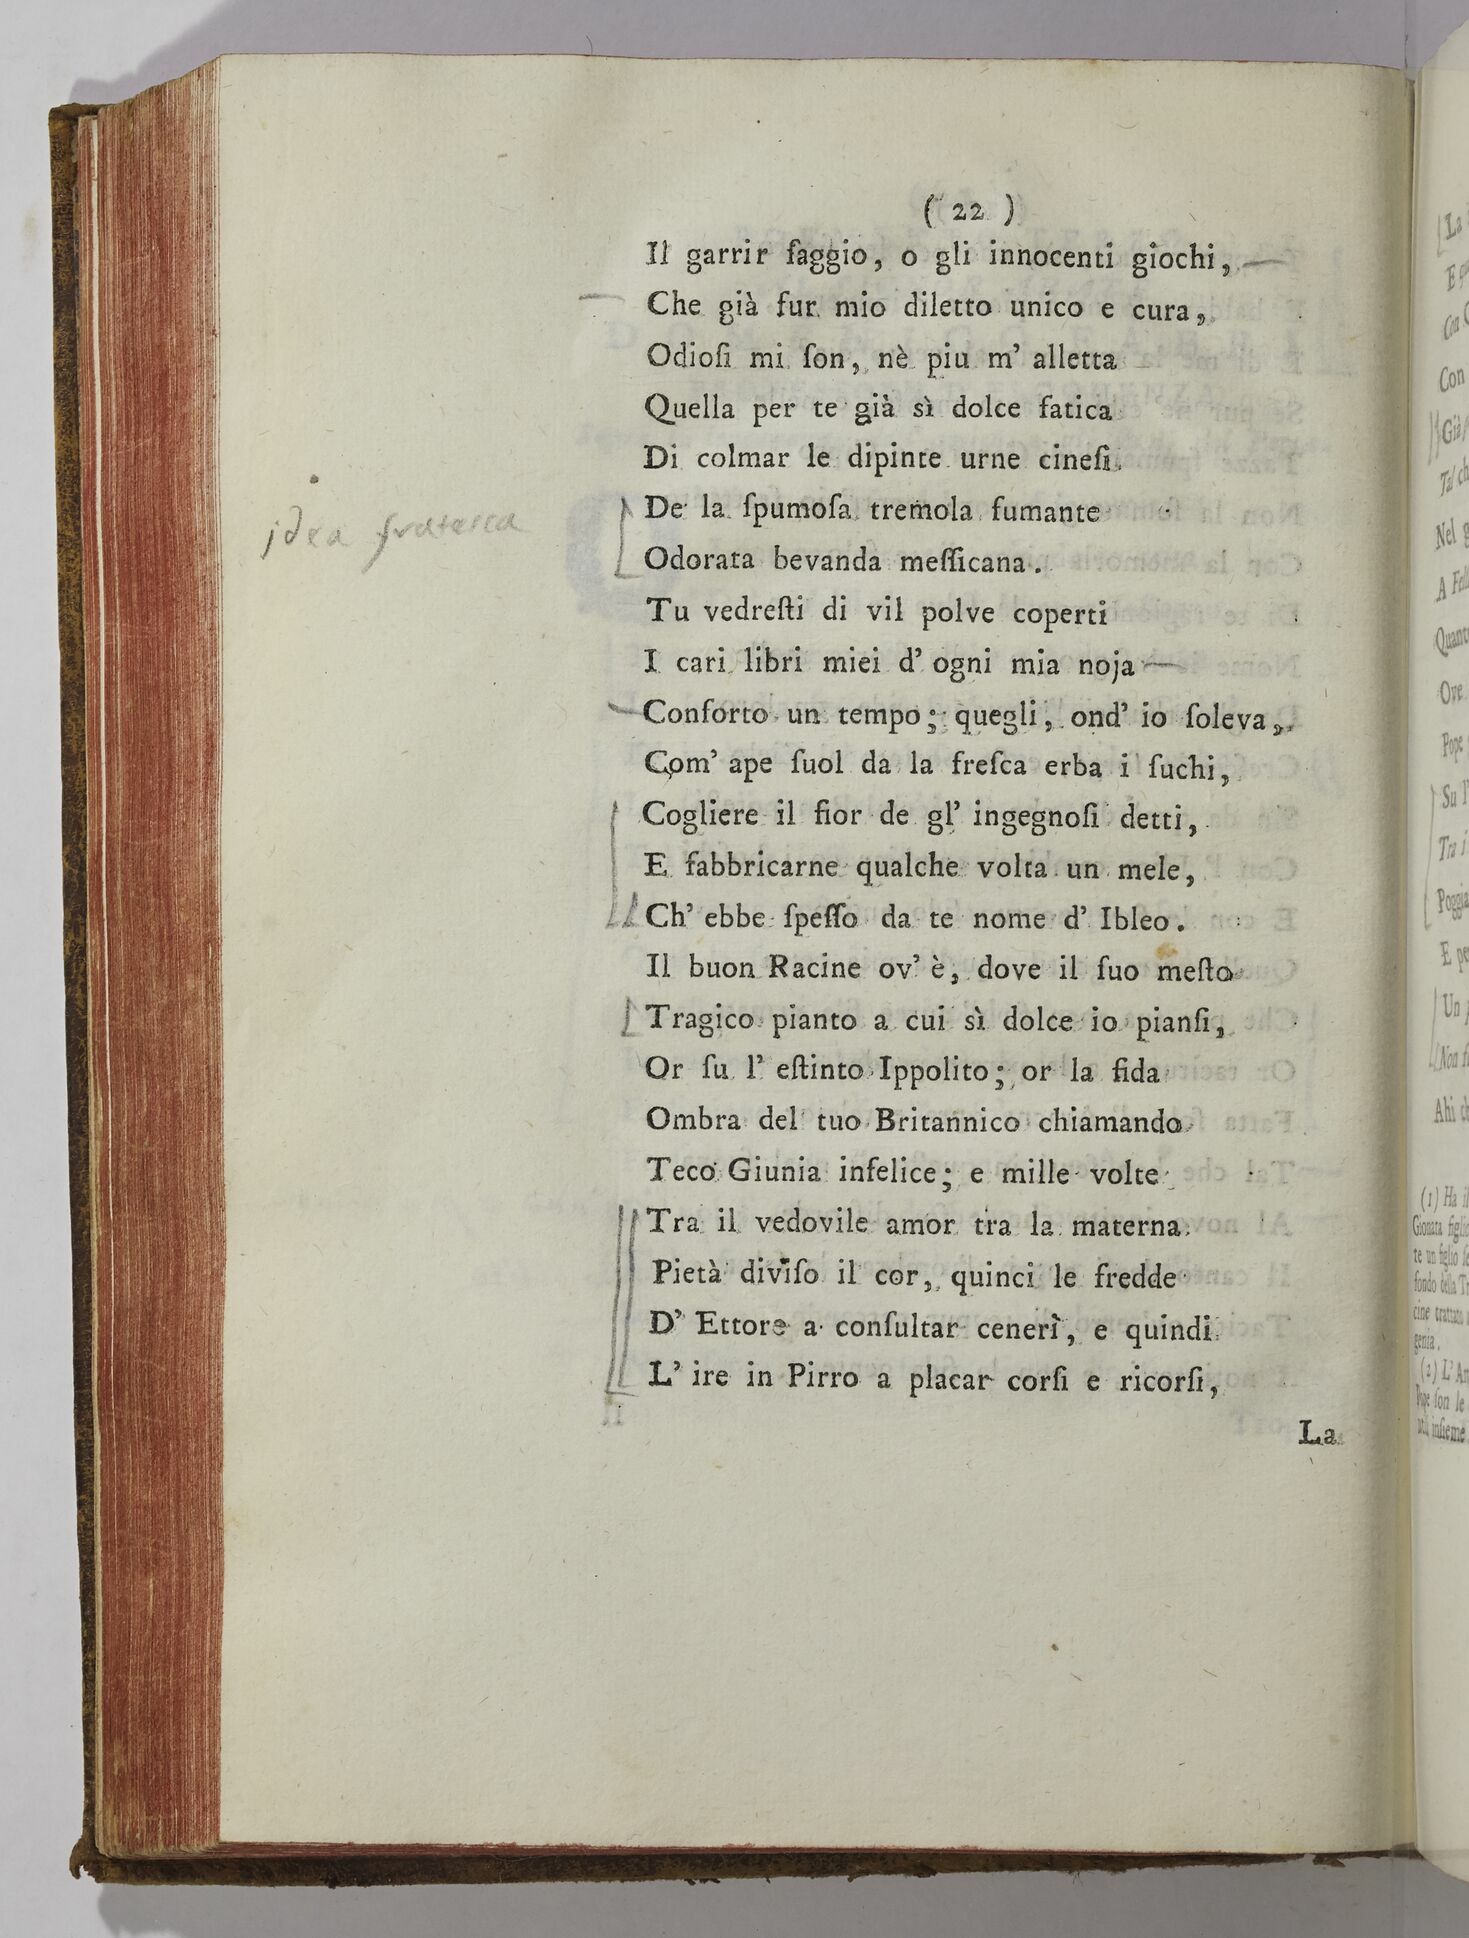 ( 22 )
Il garrir ſaggio, o gli innocenti giochi,
Che già fur mio diletto unico e cura,
Odioſi mi ſon, nè piu m' alletta
Quella per te già sì dolce fatica
Di colmar le dipinte urne cineſi
De la ſpumoſa tremola fumante
Odorata bevanda meſſicana.
Tu vedreſti di vil polve coperti
I cari libri miei d' ogni mia noja
Conforto un tempo; quegli, ond' io ſoleva,
Com' ape ſuol da la freſca erba i ſuchi,
Cogliere il fior de gl' ingegnoſi detti,
E fabbricarne qualche volta un mele,
Ch' ebbe ſpeſſo da te nome d' Ibleo.
Il buon Racine ov' è, dove il ſuo meſto
Tragico pianto a cui sì dolce io pianſi,
Or ſu l' eſtinto Ippolito; or la fida
Ombra del tuo Britannico chiamando
Teco Giunia infelice; e mille volte
Tra il vedovile amor tra la materna
Pietà diviſo il cor, quinci le fredde
D' Ettore a conſultar ceneri, e quindi
L' ire in Pirro a placar corſi e ricorſi,
La
idea fratesca
La
Con
Già
Nel
Quant
Ove
Pope
Su l'
Tra i
Poggia
E pe
Un
Non
Ahi
(1) Ha il
Gionata figlio
te un figlio
fondo della
cine trattato
genia.
(2) L'
Pope ſon le
inſieme